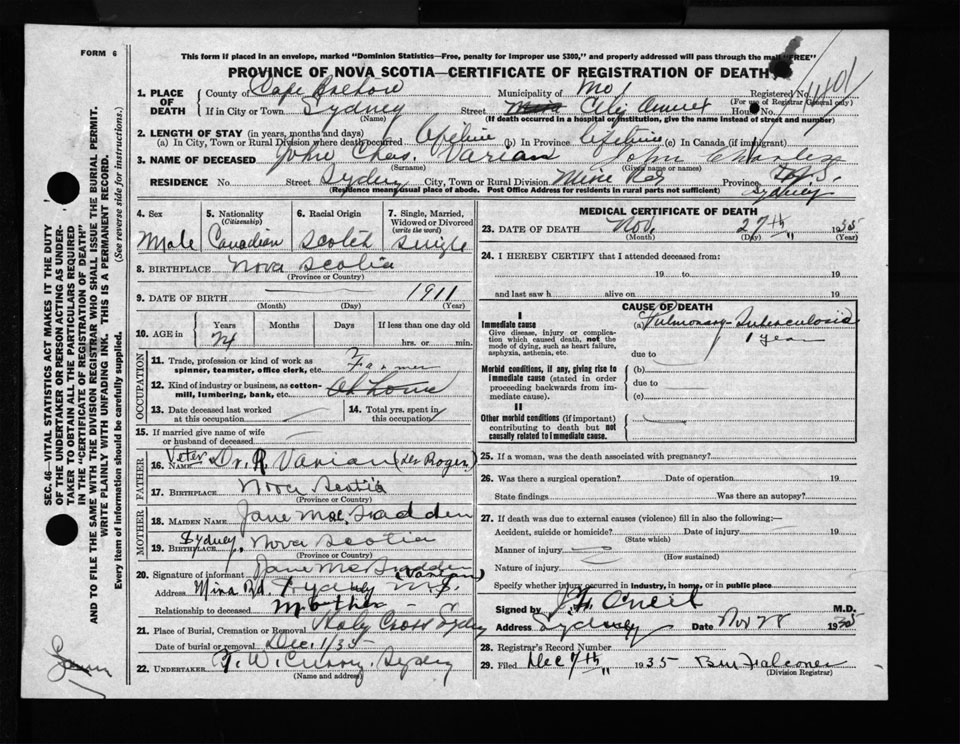 FORM 6
This form if placed in an envelope, marked "Dominion Statistics—Free, penalty for improper use $300," and properly addressed will pass through the mail "FREE"
PROVINCE OF NOVA SCOTIA—CERTIFICATE OF REGISTRATION OF DEATH
1. PLACE OF DEATH County of Cape Breton Municipality of Registered No.
(For use of Registrar General only)
If in City or Town Sydney Street City House No.
(Name) (If death occurred in a hospital or institution, give the name instead of street and number)
2. LENGTH OF STAY (in years, months and days)
(a) In City, Town or Rural Division where death occurred Lifetime (b) In Province Lifetime (c) In Canada (if immigrant)
3. NAME OF DECEASED John Chas. Varian John Charles
(Surname) (Given name or names)
RESIDENCE No Street Sydney City, Town or Rural Division Mine Rd Province N.S.
(Residence means usual place of abode. Post Office Address for residents in rural parts not sufficient) Sydney
4. Sex Male
5. Nationality (Citizenship) Canadian
6. Racial Origin Scotch
7. Single, Married, Widowed or Divorced (write the word) Single
8. BIRTHPLACE Nova Scotia
(Province or Country)
9. DATE OF BIRTH 1911
(Month) (Day) (Year)
10. AGE in Years 24 Months Days If less than one day old
hrs. or min.
OCCUPATION
11. Trade, profession or kind of work as spinner, teamster, office clerk, etc. Farmer
12. Kind of industry or business, as cotton-mill, lumbering, bank, etc. At Home
13. Date deceased last worked at this occupation
14. Total yrs. spent in this occupation
15. If married give name of wife or husband of deceased
FATHER
16. NAME Veter Dr. R. Varian (des Roger)
17. BIRTHPLACE Nova Scotia
(Province or Country)
MOTHER
18. MAIDEN NAME Jane MacFadden
19. BIRTHPLACE Sydney, Nova Scotia
(Province or Country)
20. Signature of informant Jane McFadden (Varian)
Address Mine Rd. Sydney N.S.
Relationship to deceased Mother
21. Place of Burial, Cremation or Removal Holy Cross Sydney
Date of burial or removal Dec. 1/35
22. UNDERTAKER T. W. Curry. Sydney
(Name and address)
MEDICAL CERTIFICATE OF DEATH
23. DATE OF DEATH Nov. 27th 1935
(Month) (Day) (Year)
24. I HEREBY CERTIFY that I attended deceased from:
19 to 19
and last saw h alive on 19
CAUSE OF DEATH
I
Immediate cause (a) Pulmonary Tuberculosis
1 year
Give disease, injury or complication which caused death, not the mode of dying, such as heart failure, asphyxia, asthenia, etc.
due to
Morbid conditions, if any, giving rise to immediate cause (stated in order proceeding backwards from immediate cause). (b)
due to
(c)
II
Other morbid conditions (if important) contributing to death but not causally related to immediate cause.
25. If a woman, was the death associated with pregnancy?
26. Was there a surgical operation? Date of operation 19
State findings Was there an autopsy?
27. If death was due to external causes (violence) fill in also the following:—
Accident, suicide or homicide? Date of injury 19
(State which)
Manner of injury
(How sustained)
Nature of injury
Specify whether injury occurred in industry, in home, or in public place
Signed by J. H. O'Neil M.D.
Address Sydney Date Nov 28 1935
28. Registrar's Record Number
29. Filed Dec 7th 1935 B M Falconer
(Division Registrar)
SEC. 46—VITAL STATISTICS ACT MAKES IT THE DUTY
OF THE UNDERTAKER OR PERSON ACTING AS UNDER-
TAKER TO OBTAIN ALL THE PARTICULARS REQUIRED
IN THE "CERTIFICATE OF REGISTRATION OF DEATH"
AND TO FILE THE SAME WITH THE DIVISION REGISTRAR WHO SHALL ISSUE THE BURIAL PERMIT.
WRITE PLAINLY WITH UNFADING INK. THIS IS A PERMANENT RECORD.
Every item of information should be carefully supplied. (See reverse side for instructions.)